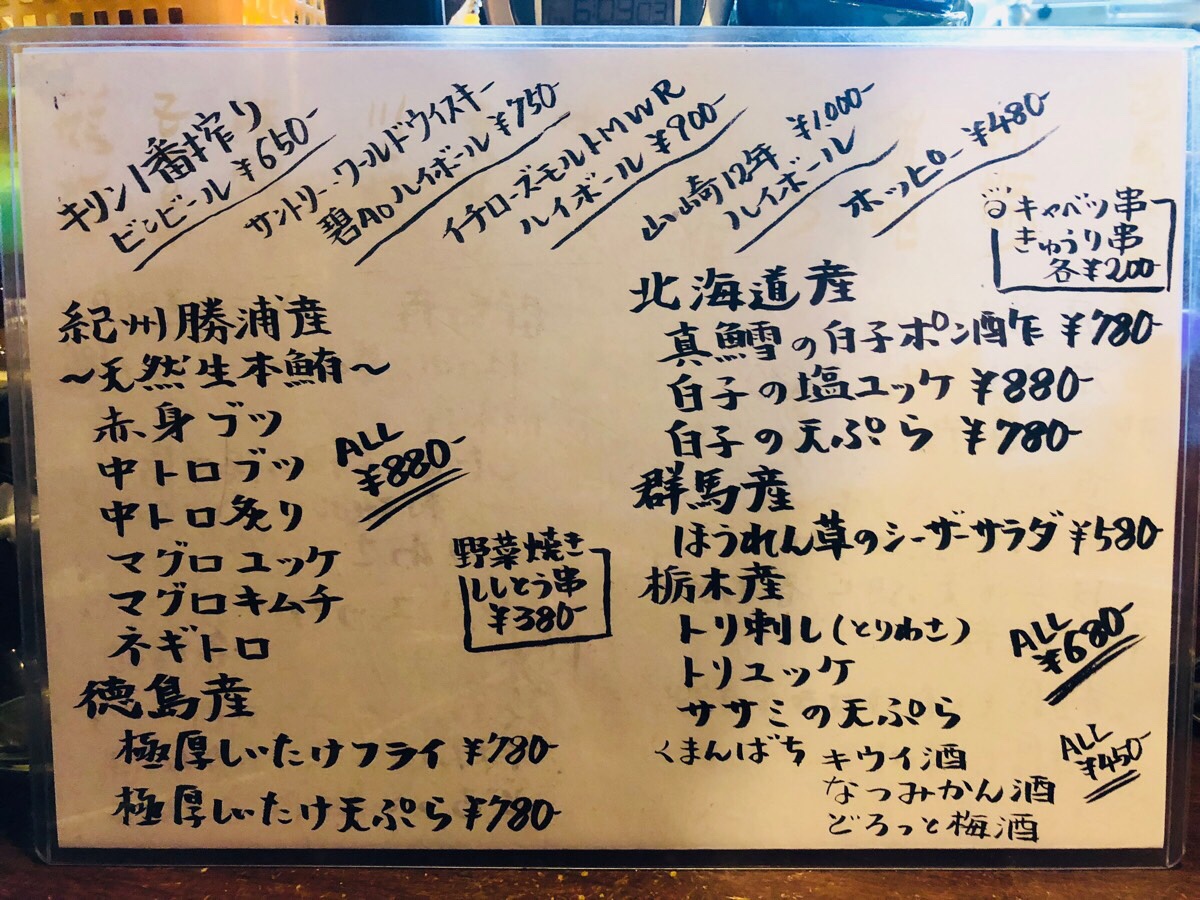 キリン1番搾り
ビンビール ¥650-
サントリー・ワールドウィスキー
碧Ao ハイボール ¥750-
イチローズモルトMWR
ハイボール ¥900-
山崎12年 ¥1,000-
ハイボール
ホッピー ¥480-
キャベツ串
きゅうり串
各¥200-
紀州勝浦産
~天然生本鮪~
赤身ブツ
中トロブツ
中トロ炙り
マグロユッケ
マグロキムチ
ネギトロ
ALL
¥880-
野菜焼き
ししとう串
¥380-
徳島産
極厚しいたけフライ ¥780-
極厚しいたけ天ぷら ¥780-
北海道産
真鱈の白子ポン酢 ¥780-
白子の塩ユッケ ¥880-
白子の天ぷら ¥780-
群馬産
ほうれん草のシーザーサラダ ¥580-
栃木産
トリ刺し(とりわさ)
トリユッケ
ササミの天ぷら
ALL
¥680-
くまんばち キウイ酒
なつみかん酒
どろっと梅酒
ALL
¥450-